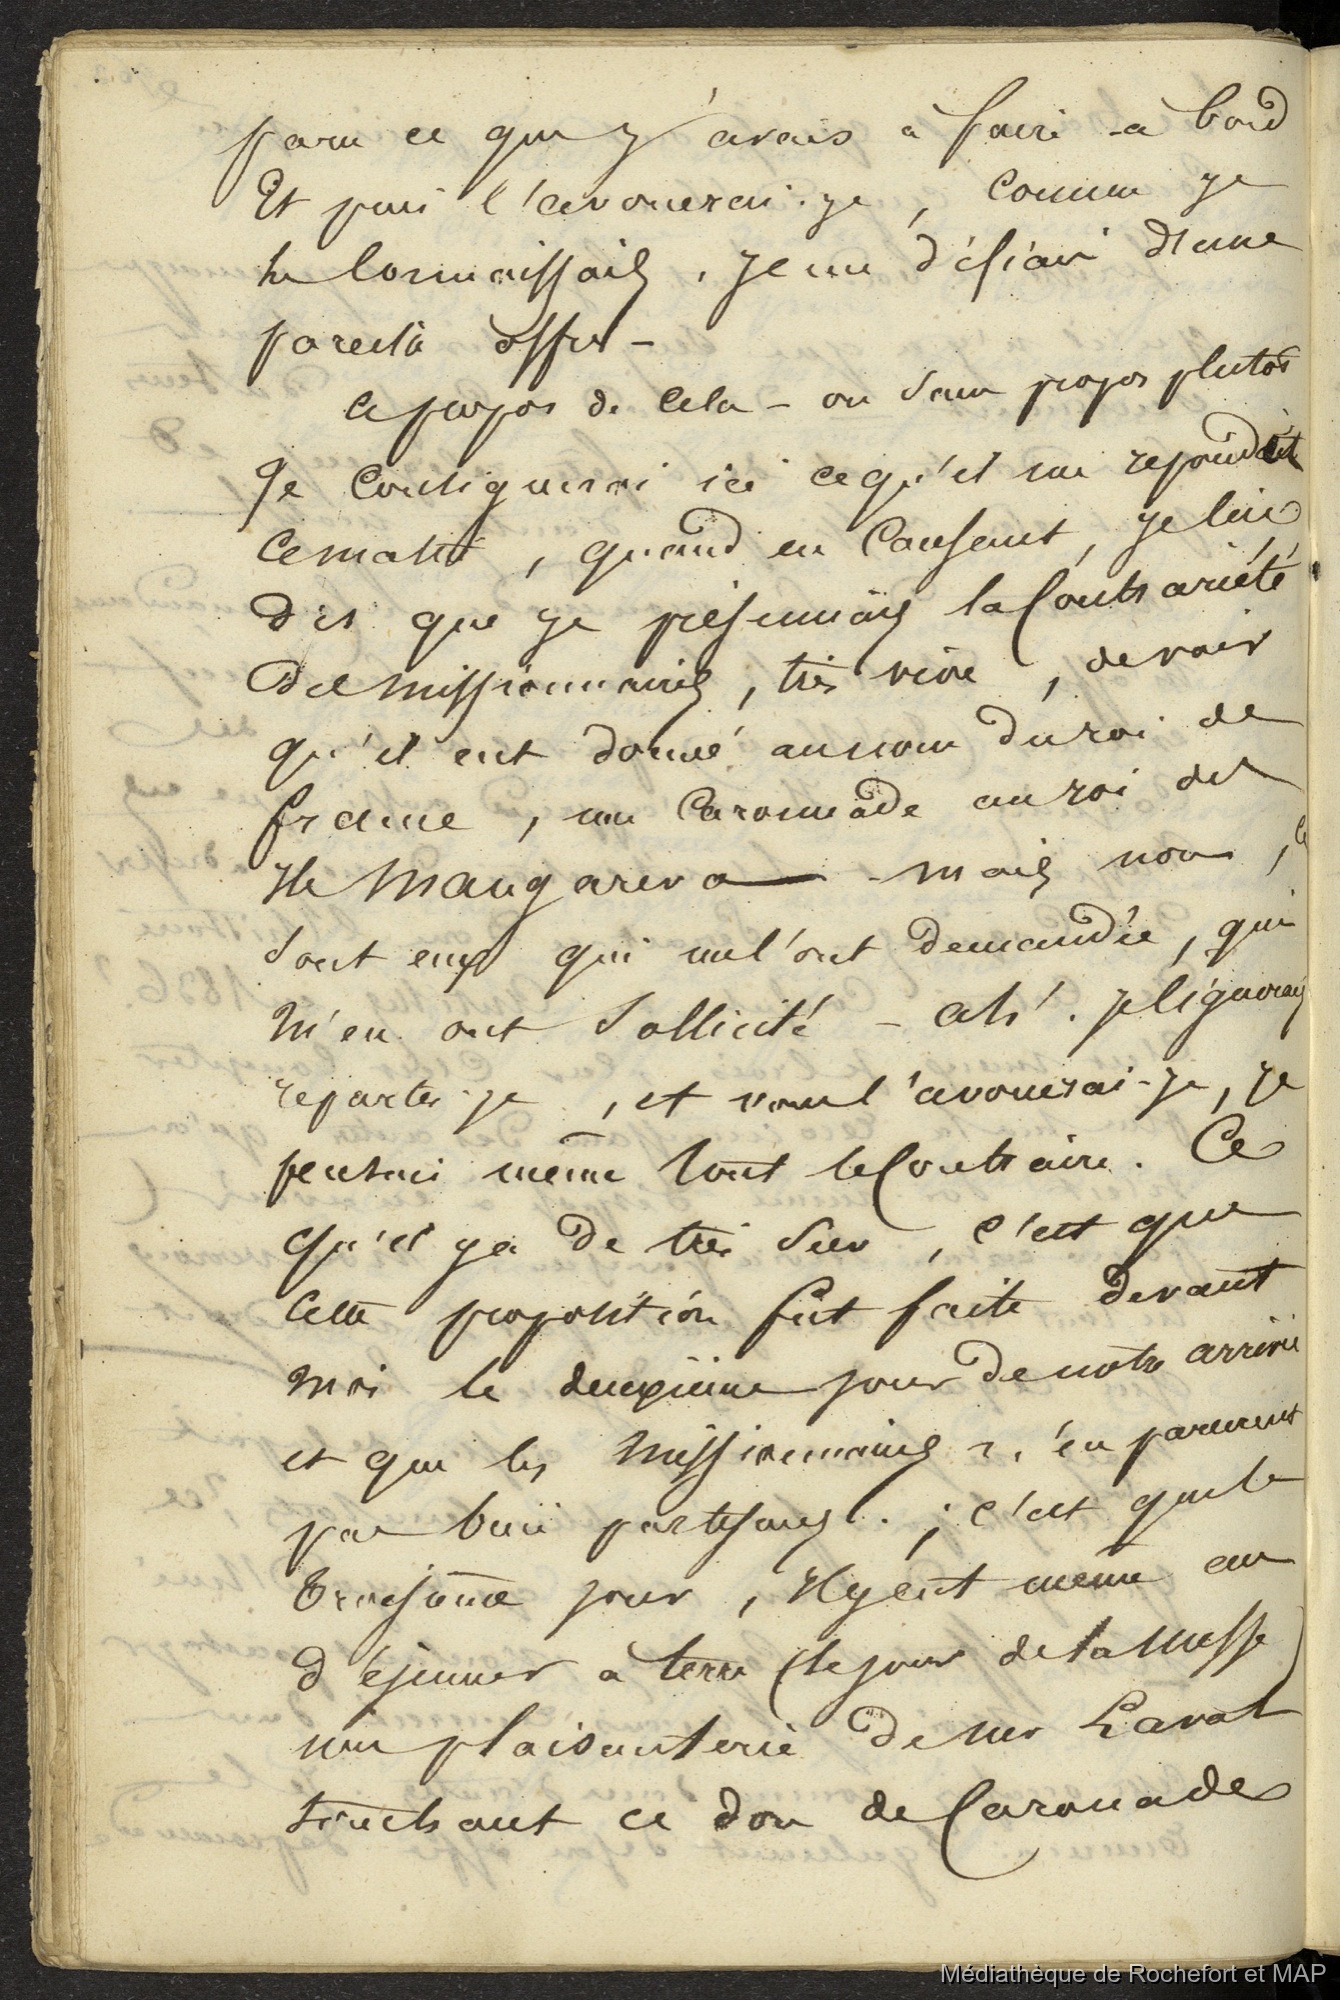 par ce que j'avais à faire à bord
Et puis l'avouerai-je, comme je
le connaissais, je me défiai d'une
pareille offre -
a propos de cela - ou sans propos plutôt
Je consignerai ici ce qu'il me repondit
ce matin, quand en causant, je lui
dis que je présumais la contrariété
des missionnaires, très vive, de voir
qu'il eut donné au nom du roi de
france, une Caronade au roi des
Iles Mangareva - mais non, ce
sont eux qui me l'ont demandée, qui
m'en ont sollicité - ah! je l'ignorais
repartis-je, et vous l'avouerai-je, je
pensais même tout le Contraire. Ce
qu'il y a de très sur, c'est que
cette proposition fut faite devant
moi le deuxième jour de notre arrivée
et que les missionnaires n'en parurent
pas bien partisans. ; c'est que le
troisième jour, il y eut même au
déjeuner à terre (le jour de la Messe)
une plaisanterie de Mr Laval
touchant ce don de Caronades
Médiathèque de Rochefort et MAP